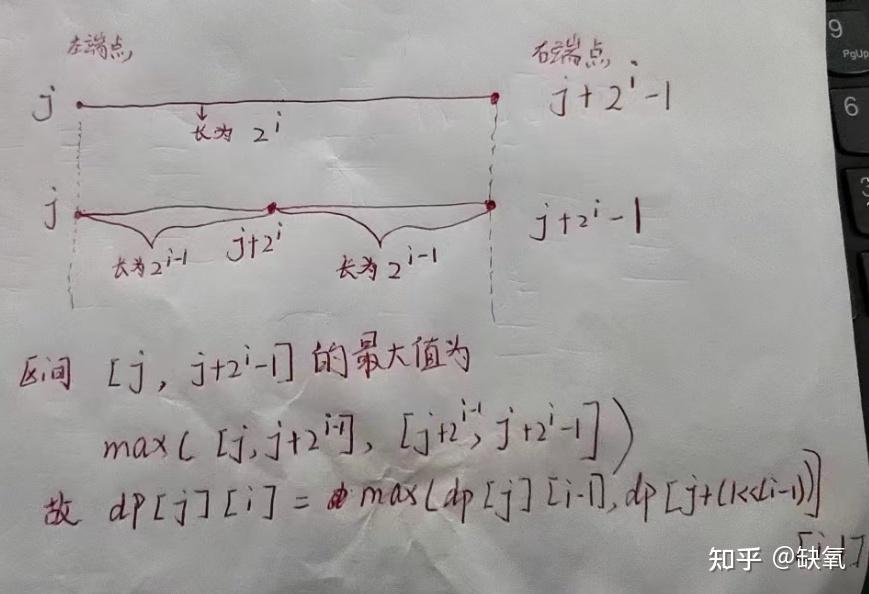 左端点, 右端点,
j j+2^i-1
长为 2^i
j j+2^i-1
长为2^{i-1} j+2^i 长为 2^{i-1}
区间 [j, j+2^i-1] 的最大值为
max( [j, j+2^{i-1}], [j+2^{i-1}, j+2^i-1] )
故 dp[j][i] = max(dp[j][i-1], dp[j+(1<<(i-1))]
[i-1]
知乎 @缺氧
9
PgUp
6
3